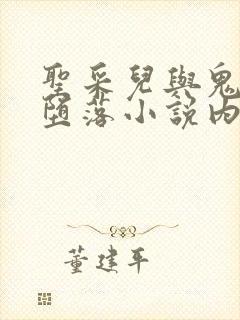 聖采兒與鬼
墮落小說內
董建平